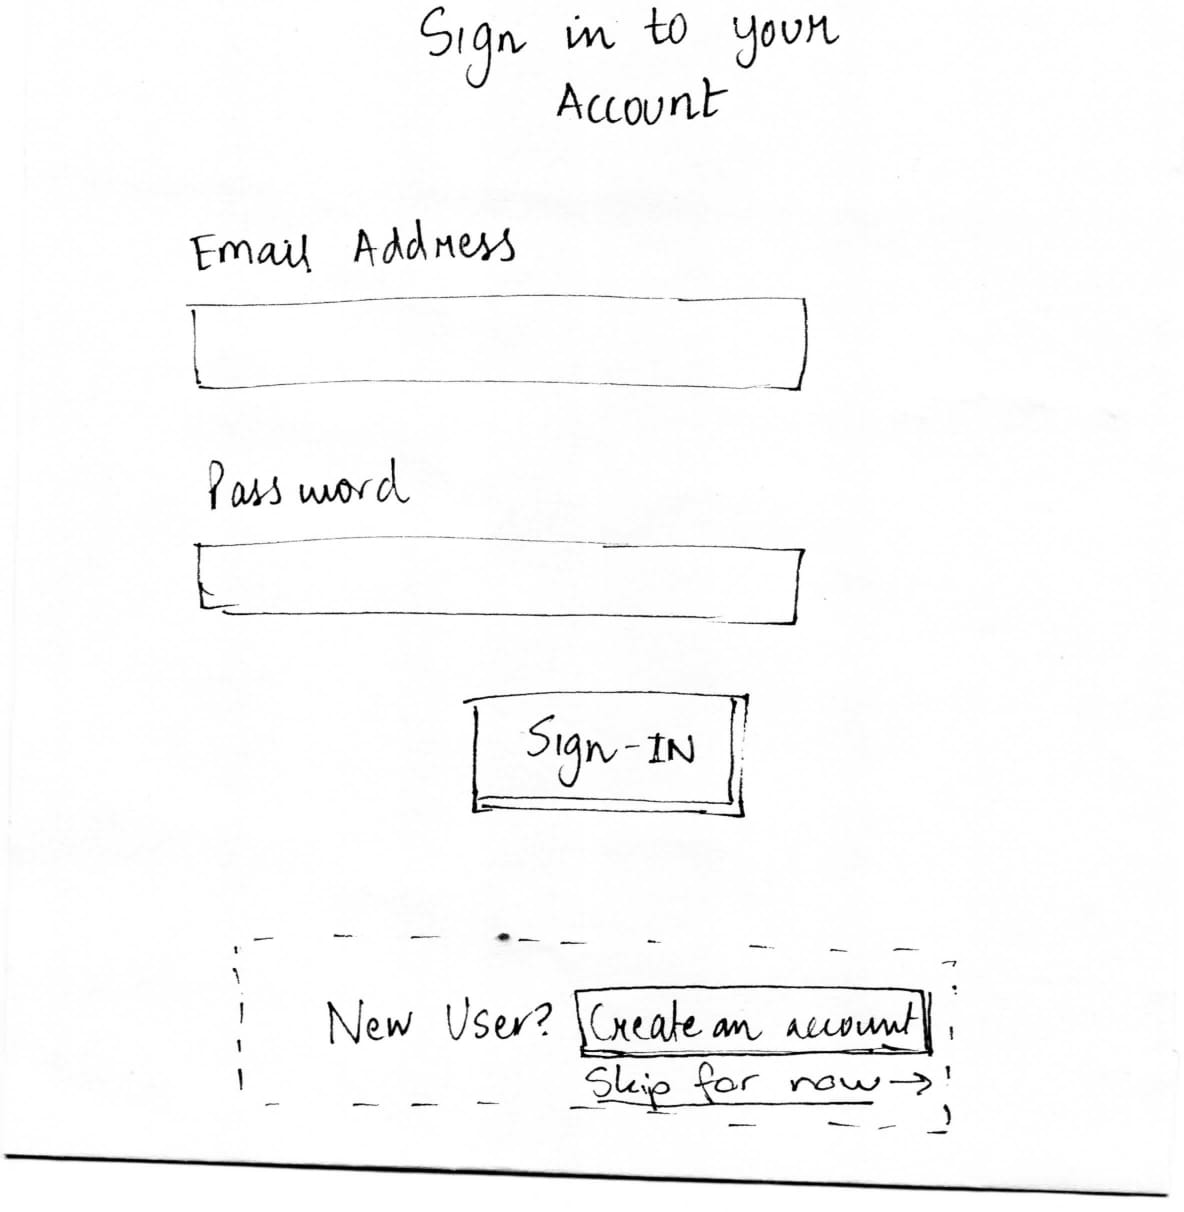 Sign in to your
Account
Email Address
Password
Sign-IN
New User? Create an account
Skip for now →